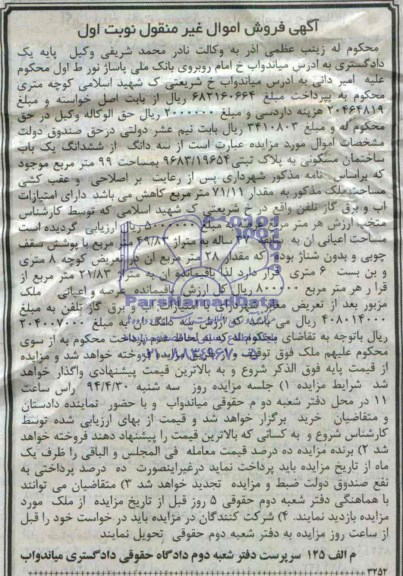 آگهی فروش اموال غیر منقول نوبت اول
محکوم له زینب عظمی آذر به وکالت نادر محمد شریفی وکیل پایه یک
دادگستری به ادرس میاندواب خ امام روبروی بانک ملی پاساژ نور ط اول محکوم
علیه امیر دانی به ادرس میاندواب خ شریعتی ک شهید اسلامی کوچه متری
محکوم به پرداخت مبلغ ۶۸۲۱۶۰۶۶۴ ریال از بابت اصل خواسته و مبلغ
۲۰۴۶۴۸۱۹ هزینه دادرسی و مبلغ ۲۰۰۰۰۰۰۰ ریال حق الوکاله وکیل در حق
محکوم له و مبلغ ۳۴۱۰۸۰۳ ریال بابت نیم عشر دولتی درحق صندوق دولت
مشخصات اموال مورد مزایده عبارت است از سه دانگ از ششدانگ یک باب
ساختمان مسکونی به پلاک ثبتی ۹۶۸۳/۱۹۶۵۴ بمساحت ۹۹ متر مربع موجود
که براساس نامه مذکور شهرداری پس از رعایت بر اصلاحی و عقب کشی
مساحت ملک مذکور به مقدار ۷۱/۱۱ متر مربع کاهش می باشد دارای امتیازات
اب و برق گاز تلفن واقع در خ شریعتی ک شهید اسلامی که توسط کارشناس
منتخب ارزش هر متر مربع ریال ارزیابی گردیده است
مساحت اعیانی ان به ساله به متراژ مربع با پوشش سقف
چوبی و بدون شناژ بوده که مقدار ۲۸ متر مربع ان در تعریض کوچه ۸ متری
و بن بست ۶ متری قرار دارد لذا باقیمانده ان به ۲۱/۸۳ متر مربع از
قرار هر متر مربع ریال کل ارزش باقیمانده عرصه و اعیانی ملک
مزبور بعد از تعریض معابر شهرداری و برق گاز تلفن به مبلغ
۴۰۸۰۱۴۰۰۰ ریال می باشد که ارزش سه دانگ به مبلغ ۲۰۴۰۰۷۰۰۰
ریال باتوجه به تقاضای محکوم له که به لحاظ عدم پرداخت محکوم به از سوی
محکوم علیهم ملک فوق توقیف فروخته خواهد شد و مزایده
از قیمت پایه فوق الذکر شروع و به بالاترین قیمت پیشنهادی واگذار خواهد
شد شرایط مزایده ۱) جلسه مزایده روز سه شنبه ۹۴/۴/۳۰ راس ساعت
۱۱ در محل دفتر شعبه دو م حقوقی میاندواب و با حضور نماینده دادستان
و متقاضیان خرید برگزار خواهد شد و قیمت از بهای ارزیابی شده توسط
کارشناس شروع و به کسانی که بالاترین قیمت را پیشنهاد دهند فروخته خواهد
شد ۲) برنده مزایده ده درصد قیمت معامله فی المجلس و الباقی را ظرف یک
ماه از تاریخ مزایده باید پرداخت نماید درغیراینصورت ده درصد پرداختی به
نفع صندوق دولت ضبط و مزایده تجدید خواهد شد ۳) متقاضیان می توانند
با هماهنگی دفتر شعبه دوم حقوقی ۵ روز قبل از تاریخ مزایده از ملک مورد
مزایده بازدید نمایند. ۴) شرکت کنندگان در مزایده باید در خواست خود را قبل
از ساعت روز مزایده به دفتر شعبه دوم حقوقی تحویل نمایند
م الف ۱۲۵ سرپرست دفتر شعبه دوم دادگاه حقوقی دادگستری میاندواب
۳۲۵۲
ParsNamadData
۰۲۱-۸۸۳۴۹۶۷۰